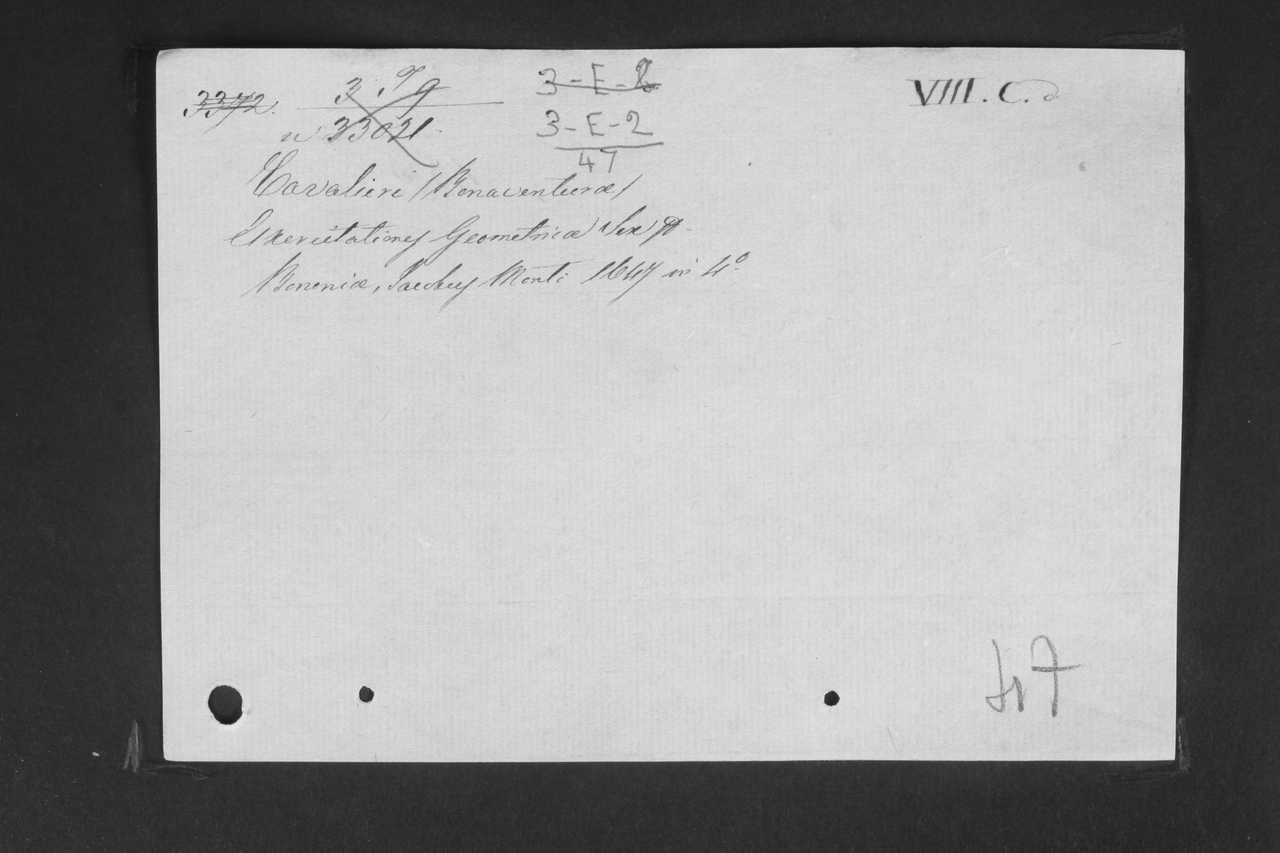 3372.
3 T g
n 33021.
3-E-2
3-E-2
47
VIII. C.
Cavalieri (Bonaventuræ)
Exercitationes Geometricæ Sex
Bononiæ, Jacobus Monti 1647 in 4º